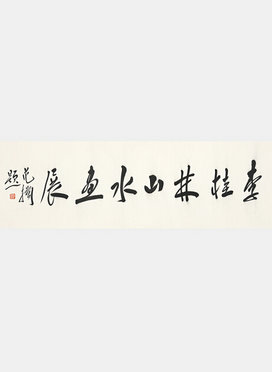 李桂林山水画展
范揚
題